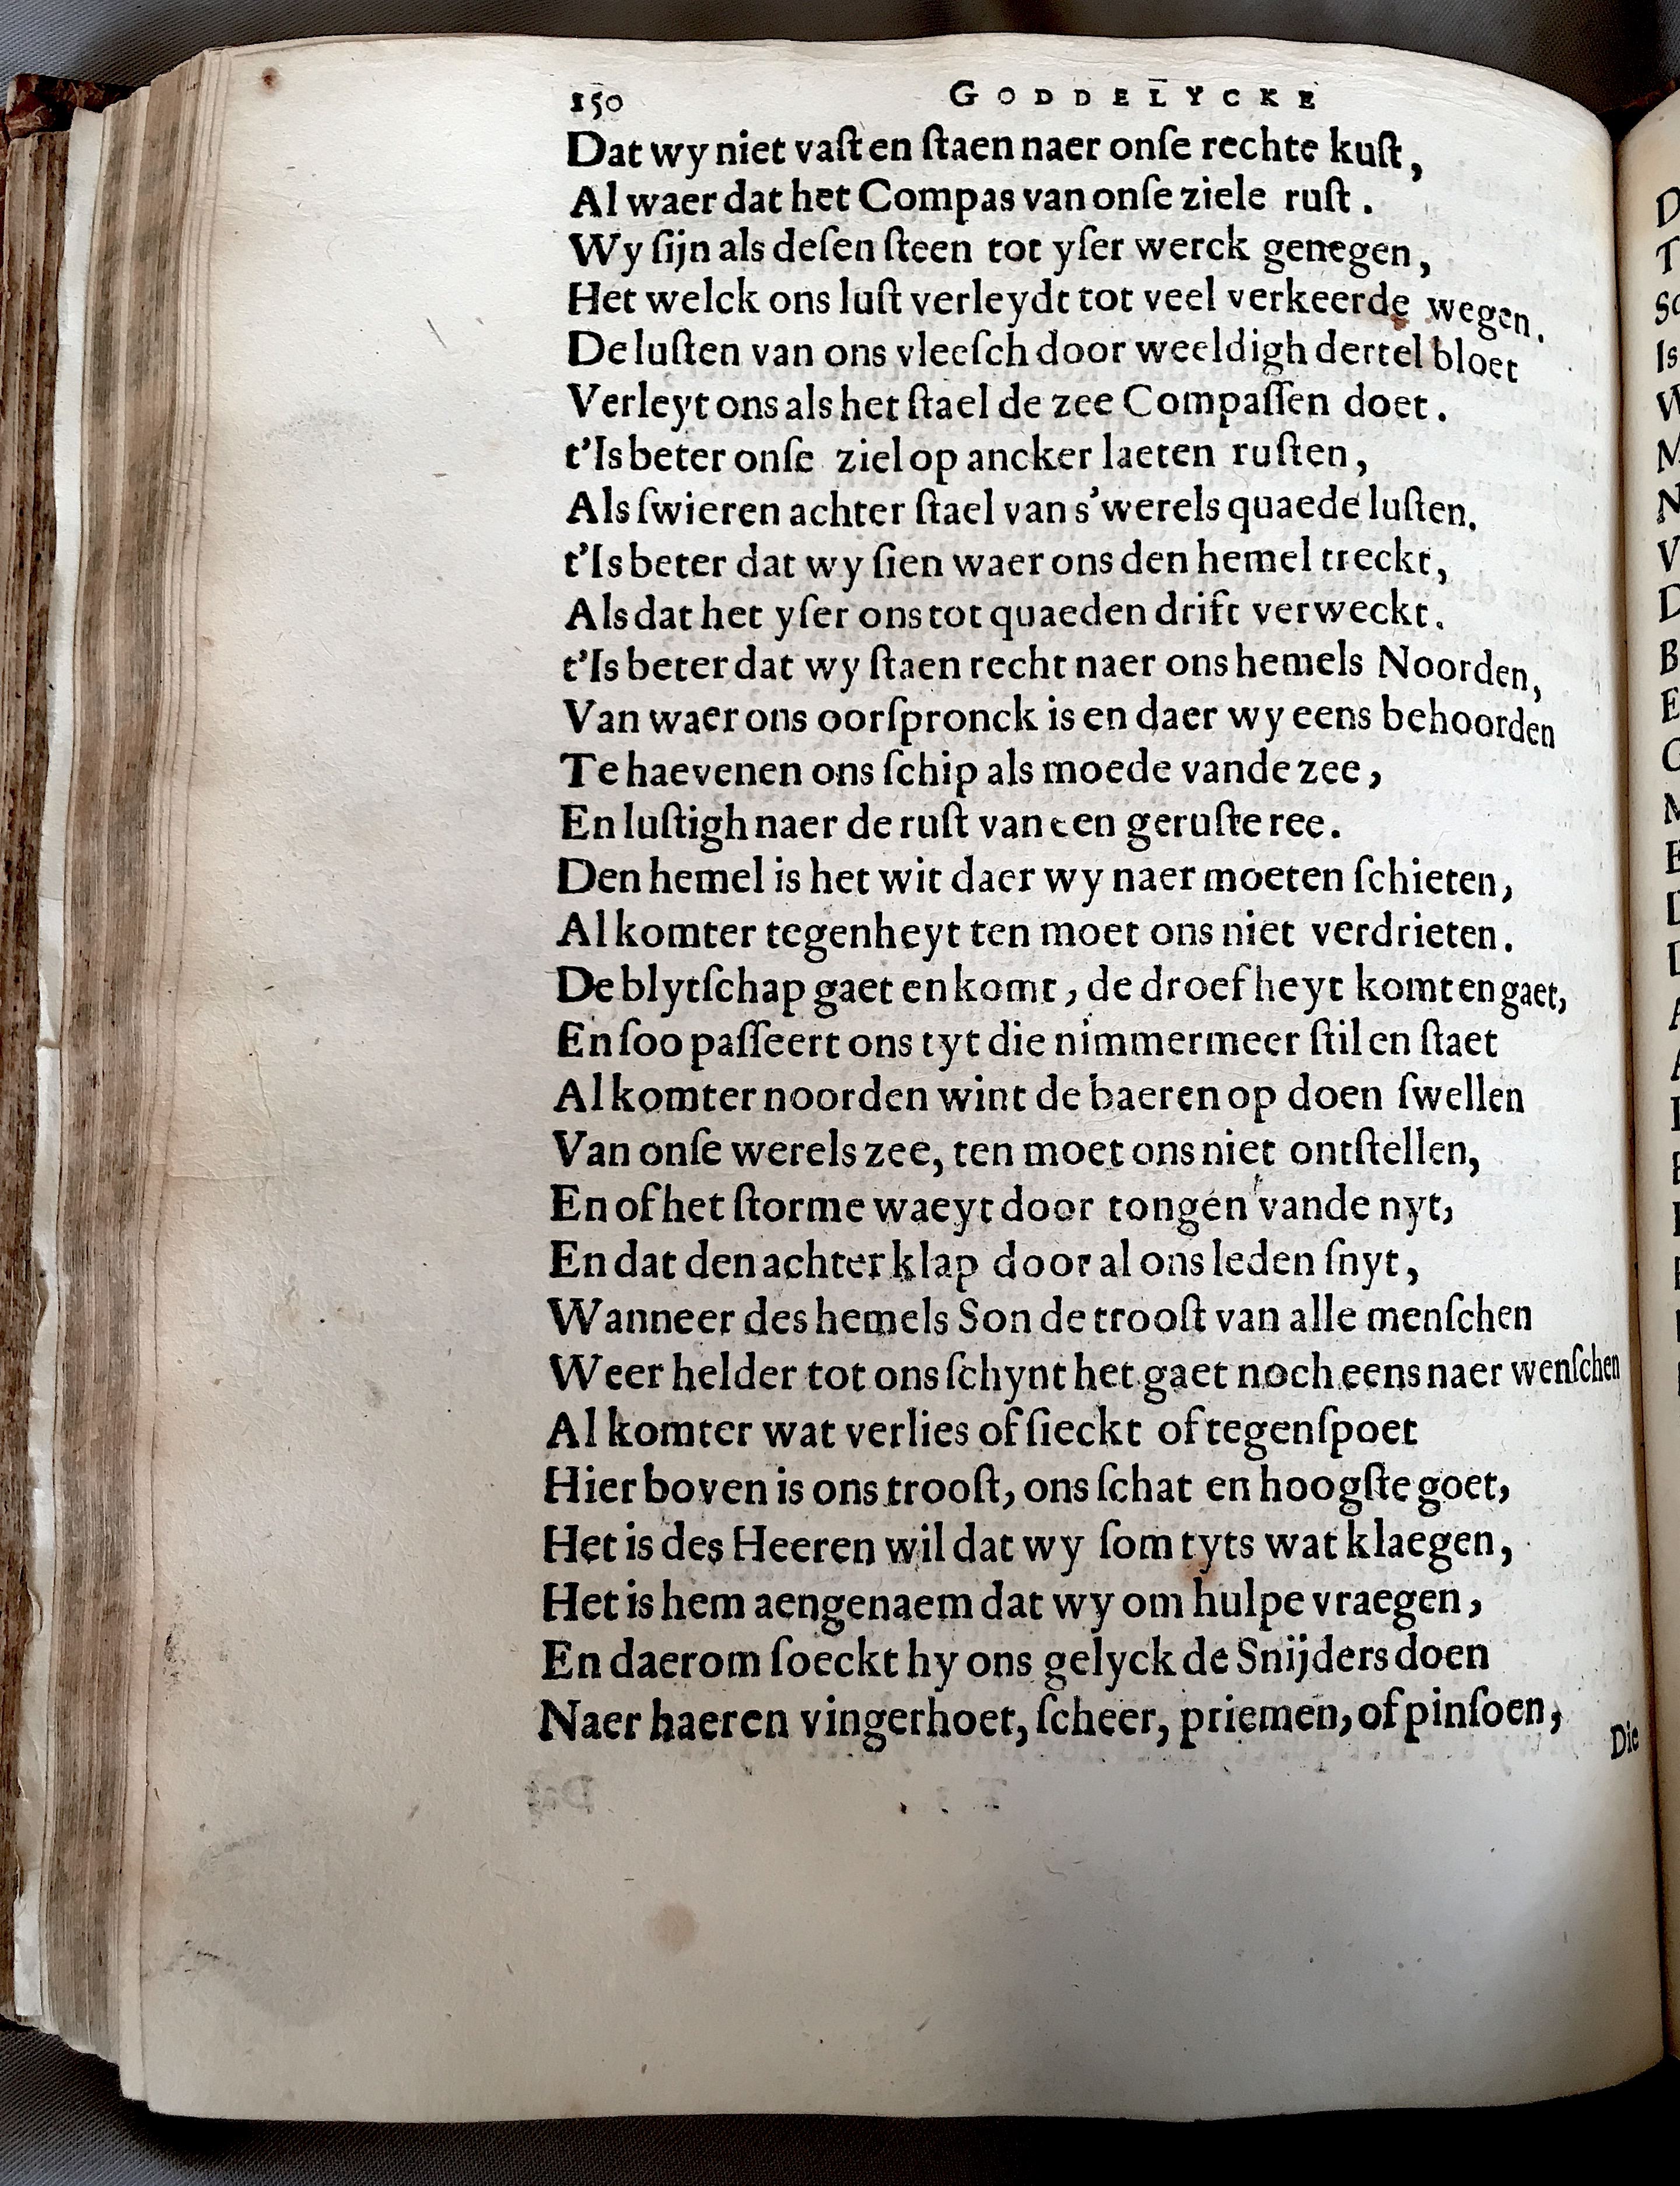 150 GODDELYCKE
Dat wy niet vast en ſtaen naer onſe rechte kuſt,
Al waer dat het Compas van onſe ziele ruſt.
Wy ſijn als deſen ſteen tot yſer werck genegen,
Het welck ons luſt verleydt tot veel verkeerde wegen.
De luſten van ons vleeſch door weeldigh dertel bloet
Verleyt ons als het ſtael de zee Compaſſen doet.
t'Is beter onſe ziel op ancker laeten ruſten,
Als ſwieren achter ſtael van s'werels quaede luſten.
t'Is beter dat wy ſien waer ons den hemel treckt,
Als dat het yſer ons tot quaeden drift verweckt.
t'Is beter dat wy ſtaen recht naer ons hemels Noorden,
Van waer ons oorſpronck is en daer wy eens behoorden
Te haevenen ons ſchip als moede vande zee,
En luſtigh naer de ruſt van een geruſte ree.
Den hemel is het wit daer wy naer moeten ſchieten,
Al komter tegenheyt ten moet ons niet verdrieten.
De blytſchap gaet en komt, de droefheyt komt en gaet,
En ſoo paſſeert ons tyt die nimmermeer ſtil en ſtaet
Al komter noorden wint de baeren op doen ſwellen
Van onſe werels zee, ten moet ons niet ontſtellen,
En of het ſtorme waeyt door tongen vande nyt,
En dat den achterklap door al ons leden ſnyt,
Wanneer des hemels Son de trooſt van alle menſchen
Weer helder tot ons ſchynt het gaet noch eens naer wenſchen
Al komter wat verlies of ſieckt of tegenſpoet
Hier boven is ons trooſt, ons ſchat en hoogſte goet,
Het is des Heeren wil dat wy ſom tyts wat klaegen,
Het is hem aengenaem dat wy om hulpe vraegen,
En daerom ſoeckt hy ons gelyck de Snijders doen
Naer haeren vingerhoet, ſcheer, priemen, of pinſoen,
Die